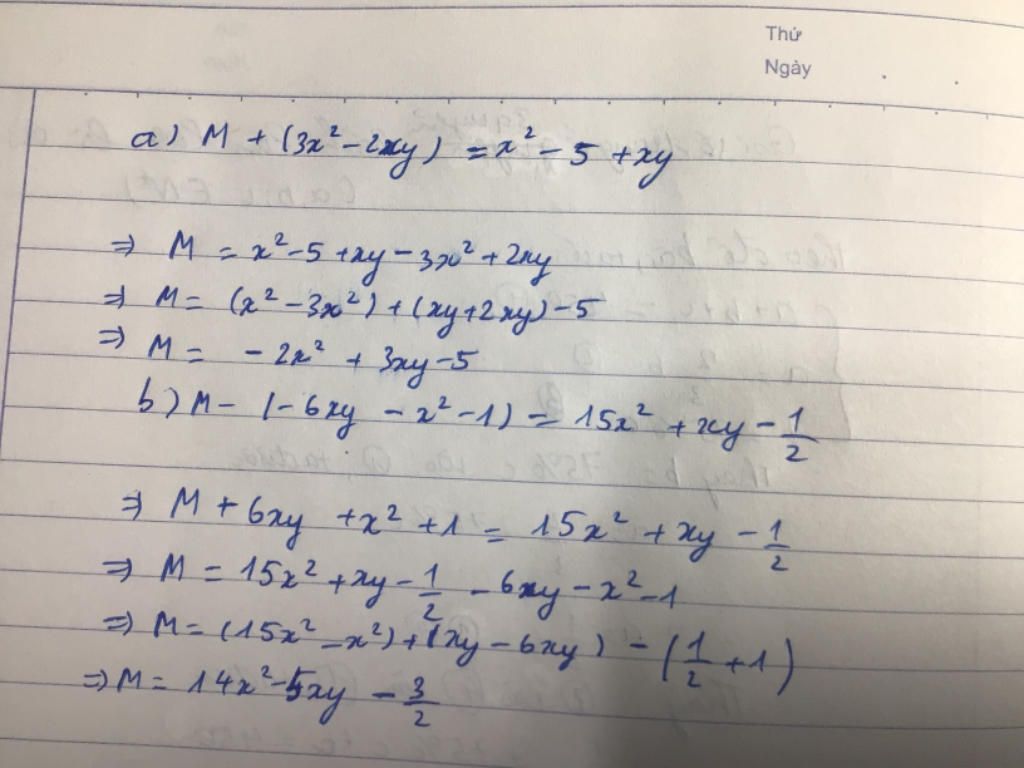 Thứ
Ngày
a) M + (3x² - 2xy) = x² - 5 + xy
⇒ M = x² - 5 + xy - 3x² + 2xy
⇒ M = (x² - 3x²) + (xy + 2xy) - 5
⇒ M = - 2x² + 3xy - 5
b) M - (-6xy - x² - 1) = 15x² + xy - 1/2
⇒ M + 6xy + x² + 1 = 15x² + xy - 1/2
⇒ M = 15x² + xy - 1/2 - 6xy - x² - 1
⇒ M = (15x² - x²) + (xy - 6xy) - (1/2 + 1)
⇒ M = 14x² - 5xy - 3/2